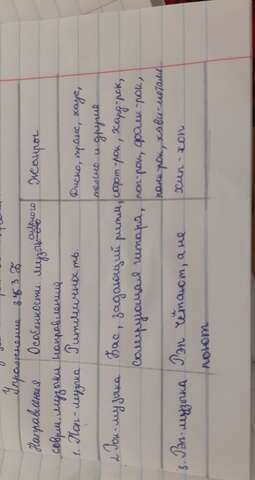 Упражнение
Направления Особенности музыкального Жанры
соврем. музыки направления
1. Поп-музыка Ритмичность. Диско, транс, хаус,
техно и другие
2. Рок-музыка Бас, задающий ритм, софт-рок, хард-рок,
солирующая гитара, поп-рок, фолк-рок,
панк-рок, хэви-металл
3. Рэп-музыка Рэп читают, а не хип-хоп
поют